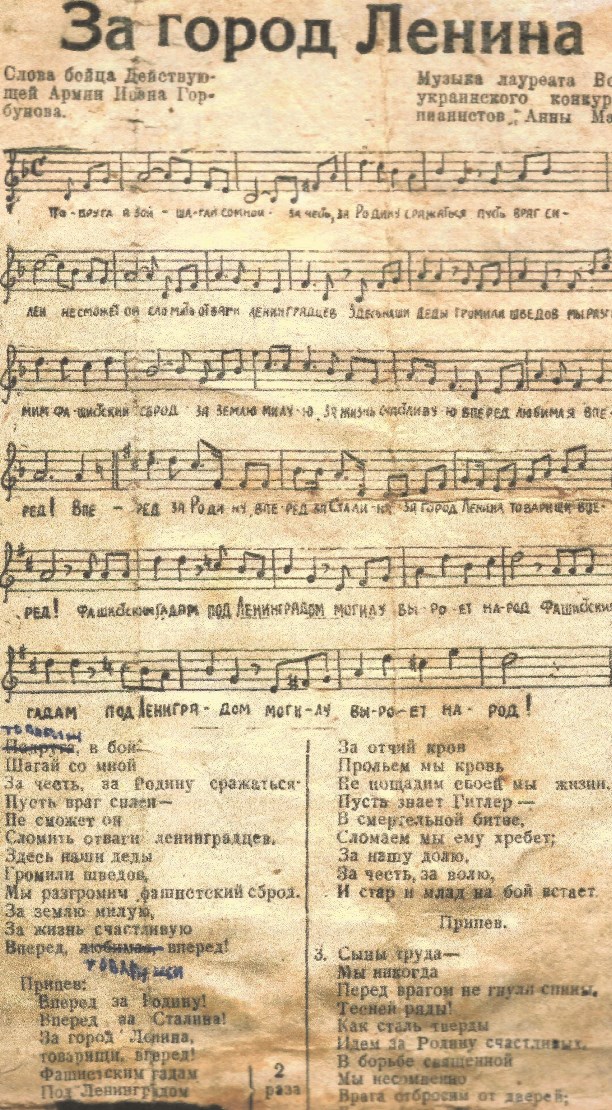 За город Ленина
Слова бойца Действую-
щей Армии Ивана Гор-
бунова.
Музыка лауреата Вс
украинского конкур
пианистов Анны Ма
ПО-ДРУГА В БОЙ - ША-ГАЙ СО МНОЙ - ЗА ЧЕСТЬ, ЗА РОДИНУ СРАЖАТЬСЯ ПУСТЬ ВРАГ СИ-
ЛЕН НЕ СМОЖЕТ ОН СЛОМИТЬ ОТВАГИ ЛЕНИНГРАДЦЕВ ЗДЕСЬ НАШИ ДЕДЫ ГРОМИЛИ ШВЕДОВ МЫ РАЗГ
МИМ ФА-ШИСТСКИЙ СБРОД ЗА ЗЕМЛЮ МИЛУ-Ю, ЗА ЖИЗНЬ СЧАСТЛИВУ-Ю ВПЕРЕД ЛЮБИМАЯ ВПЕ-
РЕД! ВПЕ - РЕД ЗА РОДИНУ, ВПЕ-РЕД ЗА СТАЛИ-НА ЗА ГОРОД ЛЕНИНА ТОВАРИЩИ ВПЕ-
РЕД! ФАШИСТСКИМ ГАДАМ ПОД ЛЕНИНГРАДОМ МОГИЛУ ВЫ-РО-ЕТ НА-РОД ФАШИСТСКИМ
ГАДАМ ПОД ЛЕНИНГРА-ДОМ МОГИ-ЛУ ВЫ-РО-ЕТ НА-РОД!
товарищ
Подруга, в бой
Шагай со мной
За честь, за Родину сражаться
Пусть враг силен—
Не сможет он
Сломить отваги ленинградцев.
Здесь наши деды
Громили шведов,
Мы разгромим фашистский сброд.
За землю милую,
За жизнь счастливую
Вперед, любимая, вперед!
товарищи
Припев:
Вперед за Родину!
Вперед за Сталина!
За город Ленина,
товарищи, вперед!
Фашистским гадам
Под Ленинградом
2
раза
За отчий кров
Прольем мы кровь
Не пощадим своей мы жизни.
Пусть знает Гитлер—
В смертельной битве,
Сломаем мы ему хребет;
За нашу долю,
За честь, за волю,
И стар и млад на бой встает.
Припев.
3. Сыны труда—
Мы никогда
Перед врагом не гнули спины,
Тесней ряды!
Как сталь тверды
Идем за Родину счастливых.
В борьбе священной
Мы несомненно
Врага отбросим от дверей;